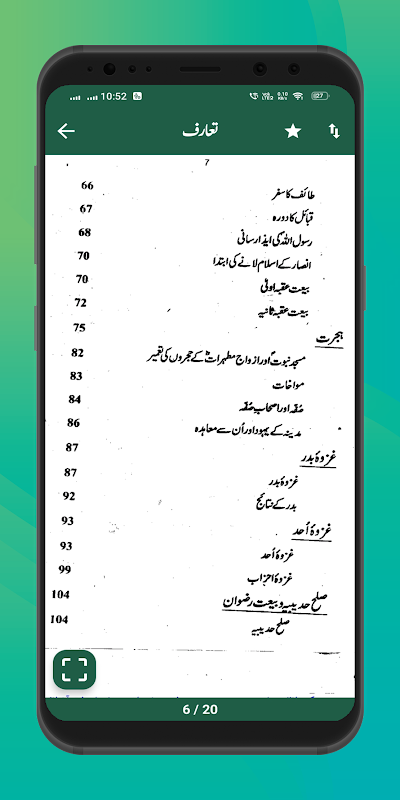 10:52
27
تعارف
7
طائف کا سفر 66
قبائل کا دورہ 67
رسول اللہ کی ایذا رسانی 68
انصار کے اسلام لانے کی ابتدا 70
بیعت عقبہ اولیٰ 70
بیعت عقبہ ثانیہ 72
ہجرت 75
مسجد نبوی اور ازواج مطہرات کے حجروں کی تعمیر 82
مواخات 83
صفہ اور اصحاب صفہ 84
مدینہ کے یہود اور اُن سے معاہدہ 86
غزوۂ بدر 87
غزوۂ بدر 87
بدر کے نتائج 92
غزوۂ اُحد 93
غزوۂ اُحد 93
غزوۂ احزاب 99
صلح حدیبیہ و بیعت رضوان 104
صلح حدیبیہ 104
6 / 20